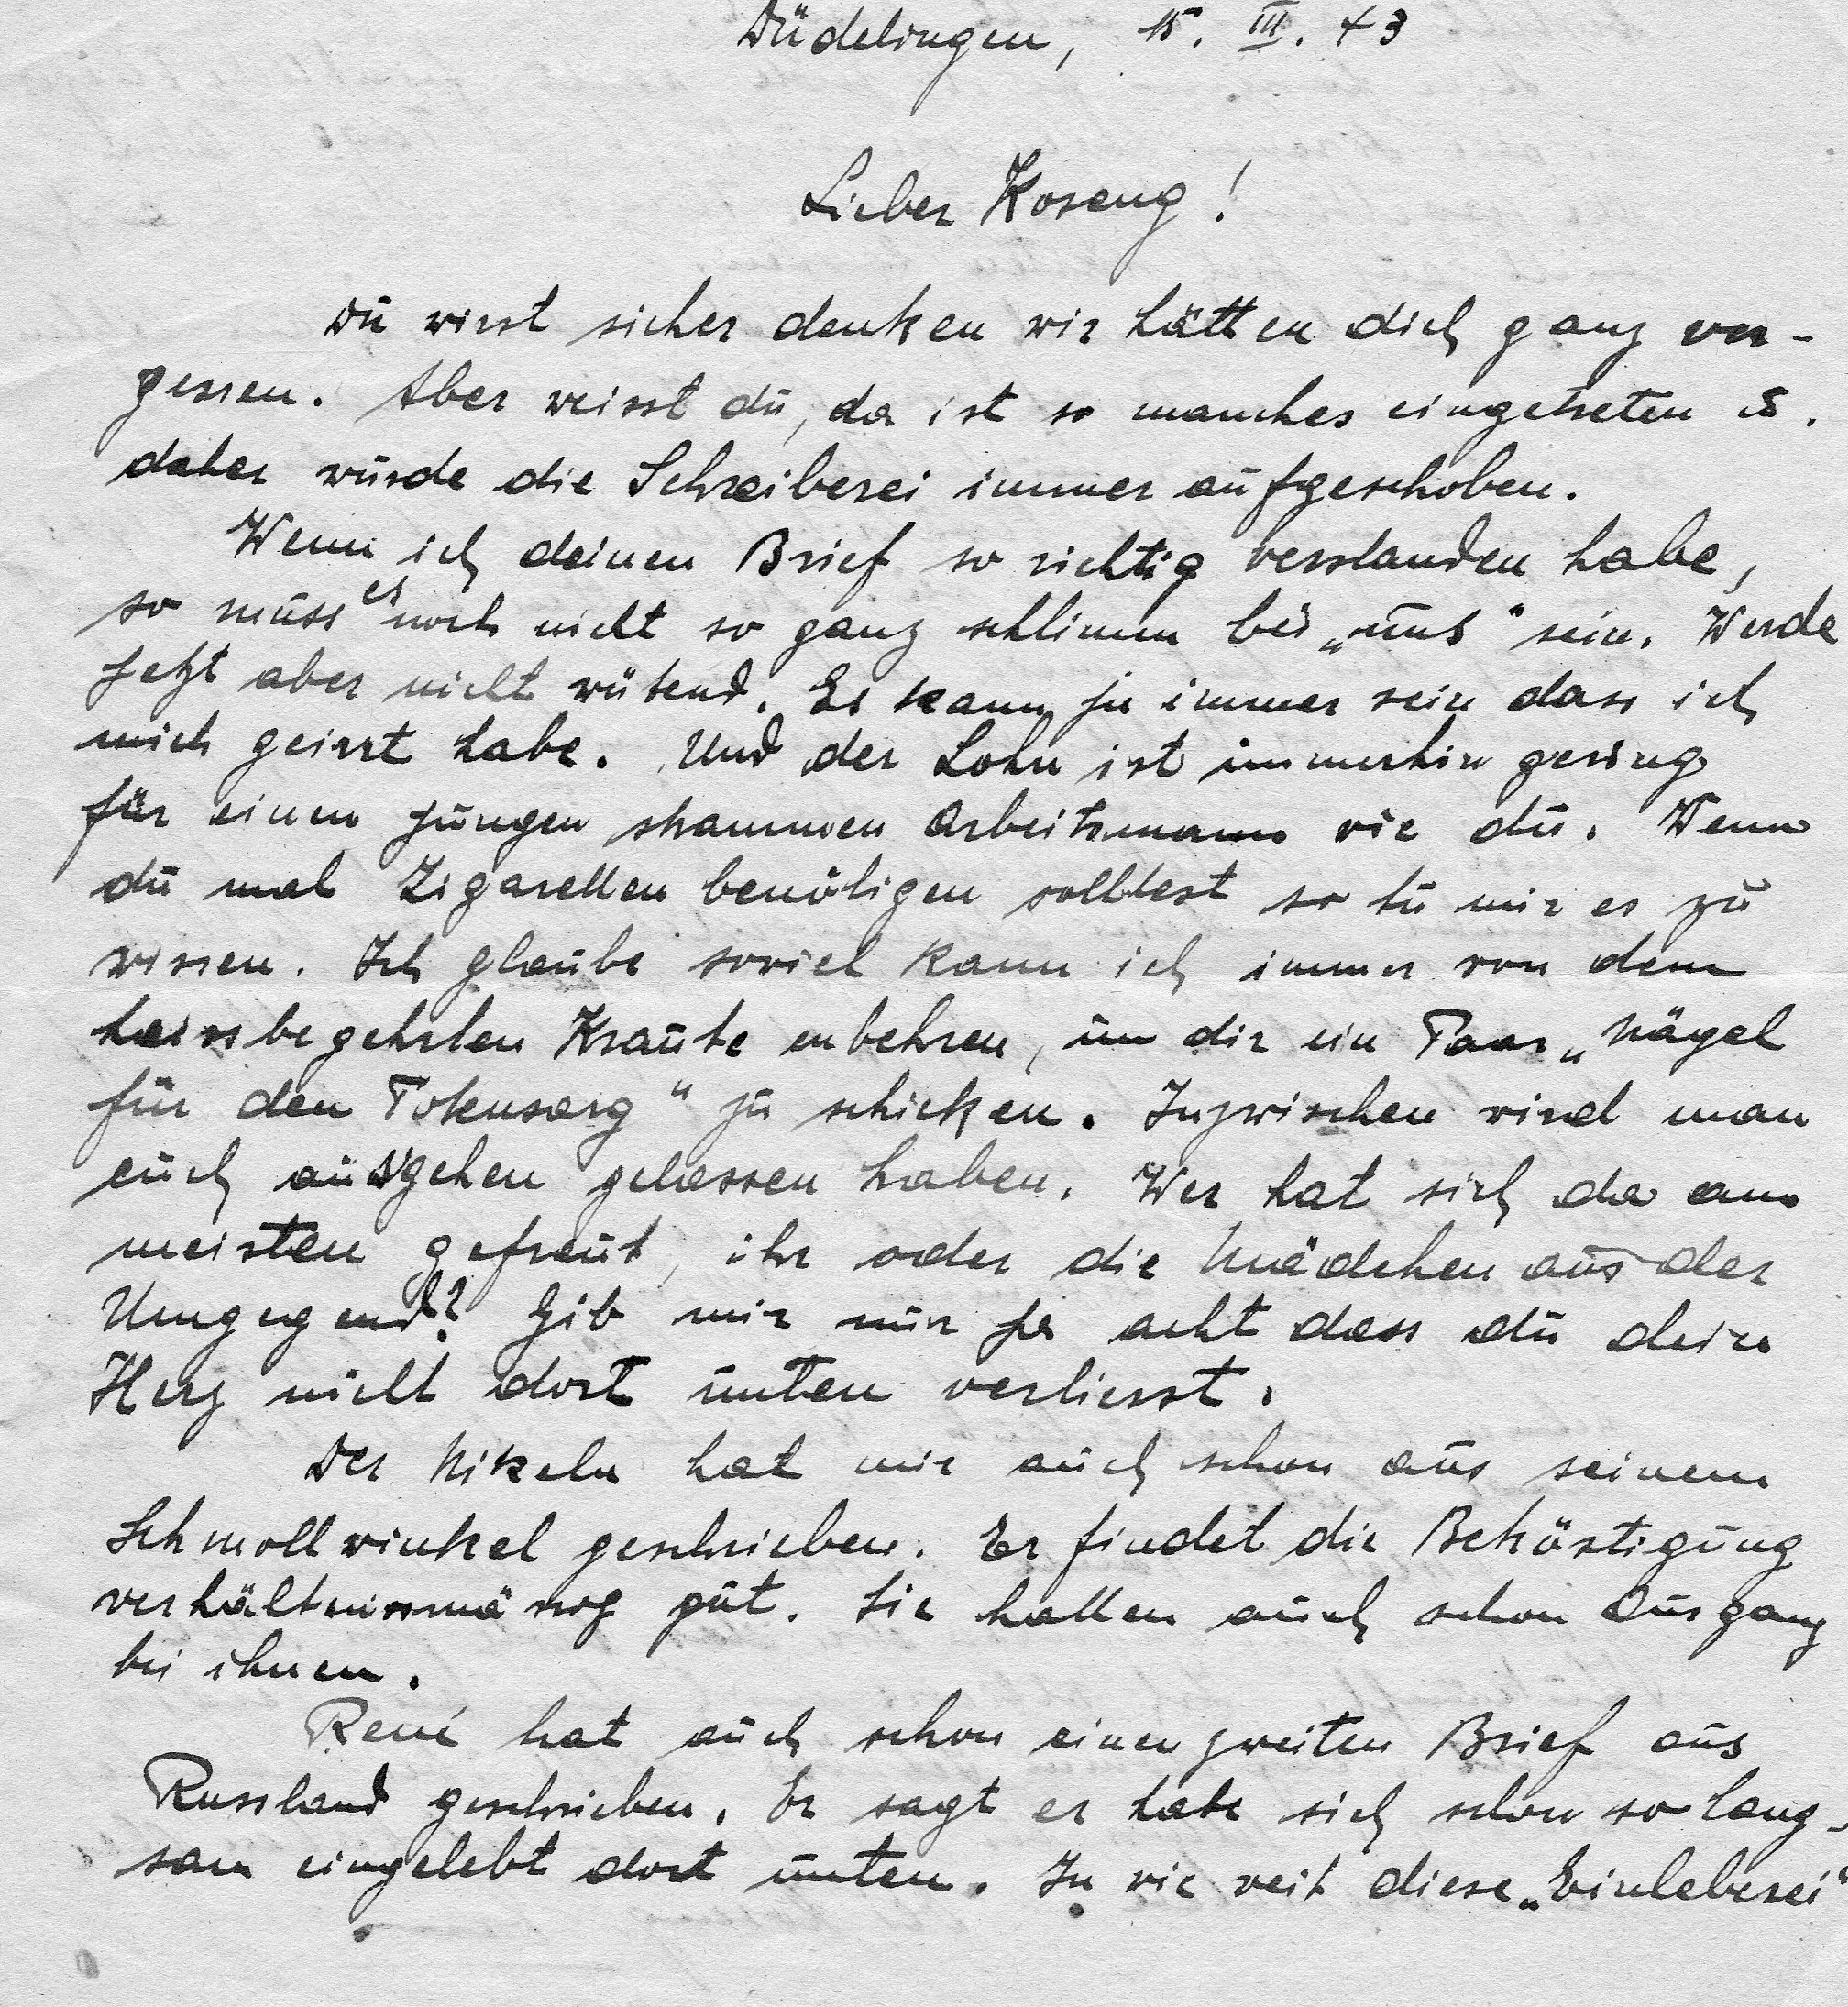 Düdelingen, 15. III. 43
Lieber Koseng!
Du wirst sicher denken wir hätten dich ganz ver-
gessen. Aber weisst du, da ist so manches eingetreten u.
daher wurde die Schreiberei immer aufgeschoben.
Wenn ich deinen Brief so richtig verstanden habe,
so muss es noch nicht so ganz schlimm bei „uns“ sein. Werde
jetzt aber nicht wütend. Es kann ja immer sein dass ich
mich geirrt habe. Und der Lohn ist immerhin gering
für einen jungen strammen Arbeitsmann wie du. Wenn
du mal Zigaretten benötigen solltest so tu mir es zu
wissen. Ich glaube soviel kann ich immer von dem
heissbegehrten Kraute enbehren, um dir ein Paar „Nägel
für den Totensarg“ zu schicken. Inzwischen wird man
euch ausgehen gelassen haben. Wer hat sich da am
meisten gefreut, ihr oder die Mädchen aus der
Umgegend? Gib mir nur ja acht dass du dein
Herz nicht dort unten verlierst.
Der Nikeln hat mir auch schon aus seinem
Schmollwinkel geschrieben. Er findet die Beköstigung
verhältnissmässig gut. Sie hatten auch schon Ausgang
bei ihnen.
René hat auch schon einen zweiten Brief aus
Russland geschrieben. Er sagt er habe sich schon so lang-
sam eingelebt dort unten. In wie weit diese „Einleberei“